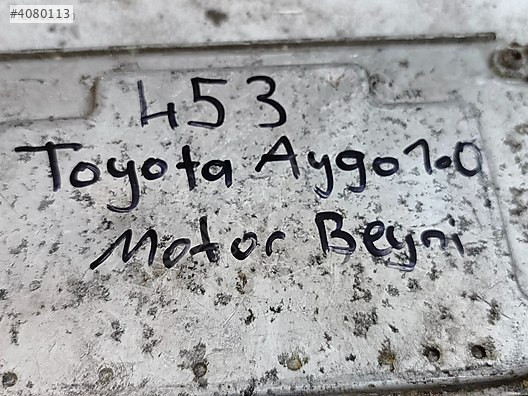 #4080113
sahibinden.com
453
Toyota Aygo 1.0
Motor Beyni